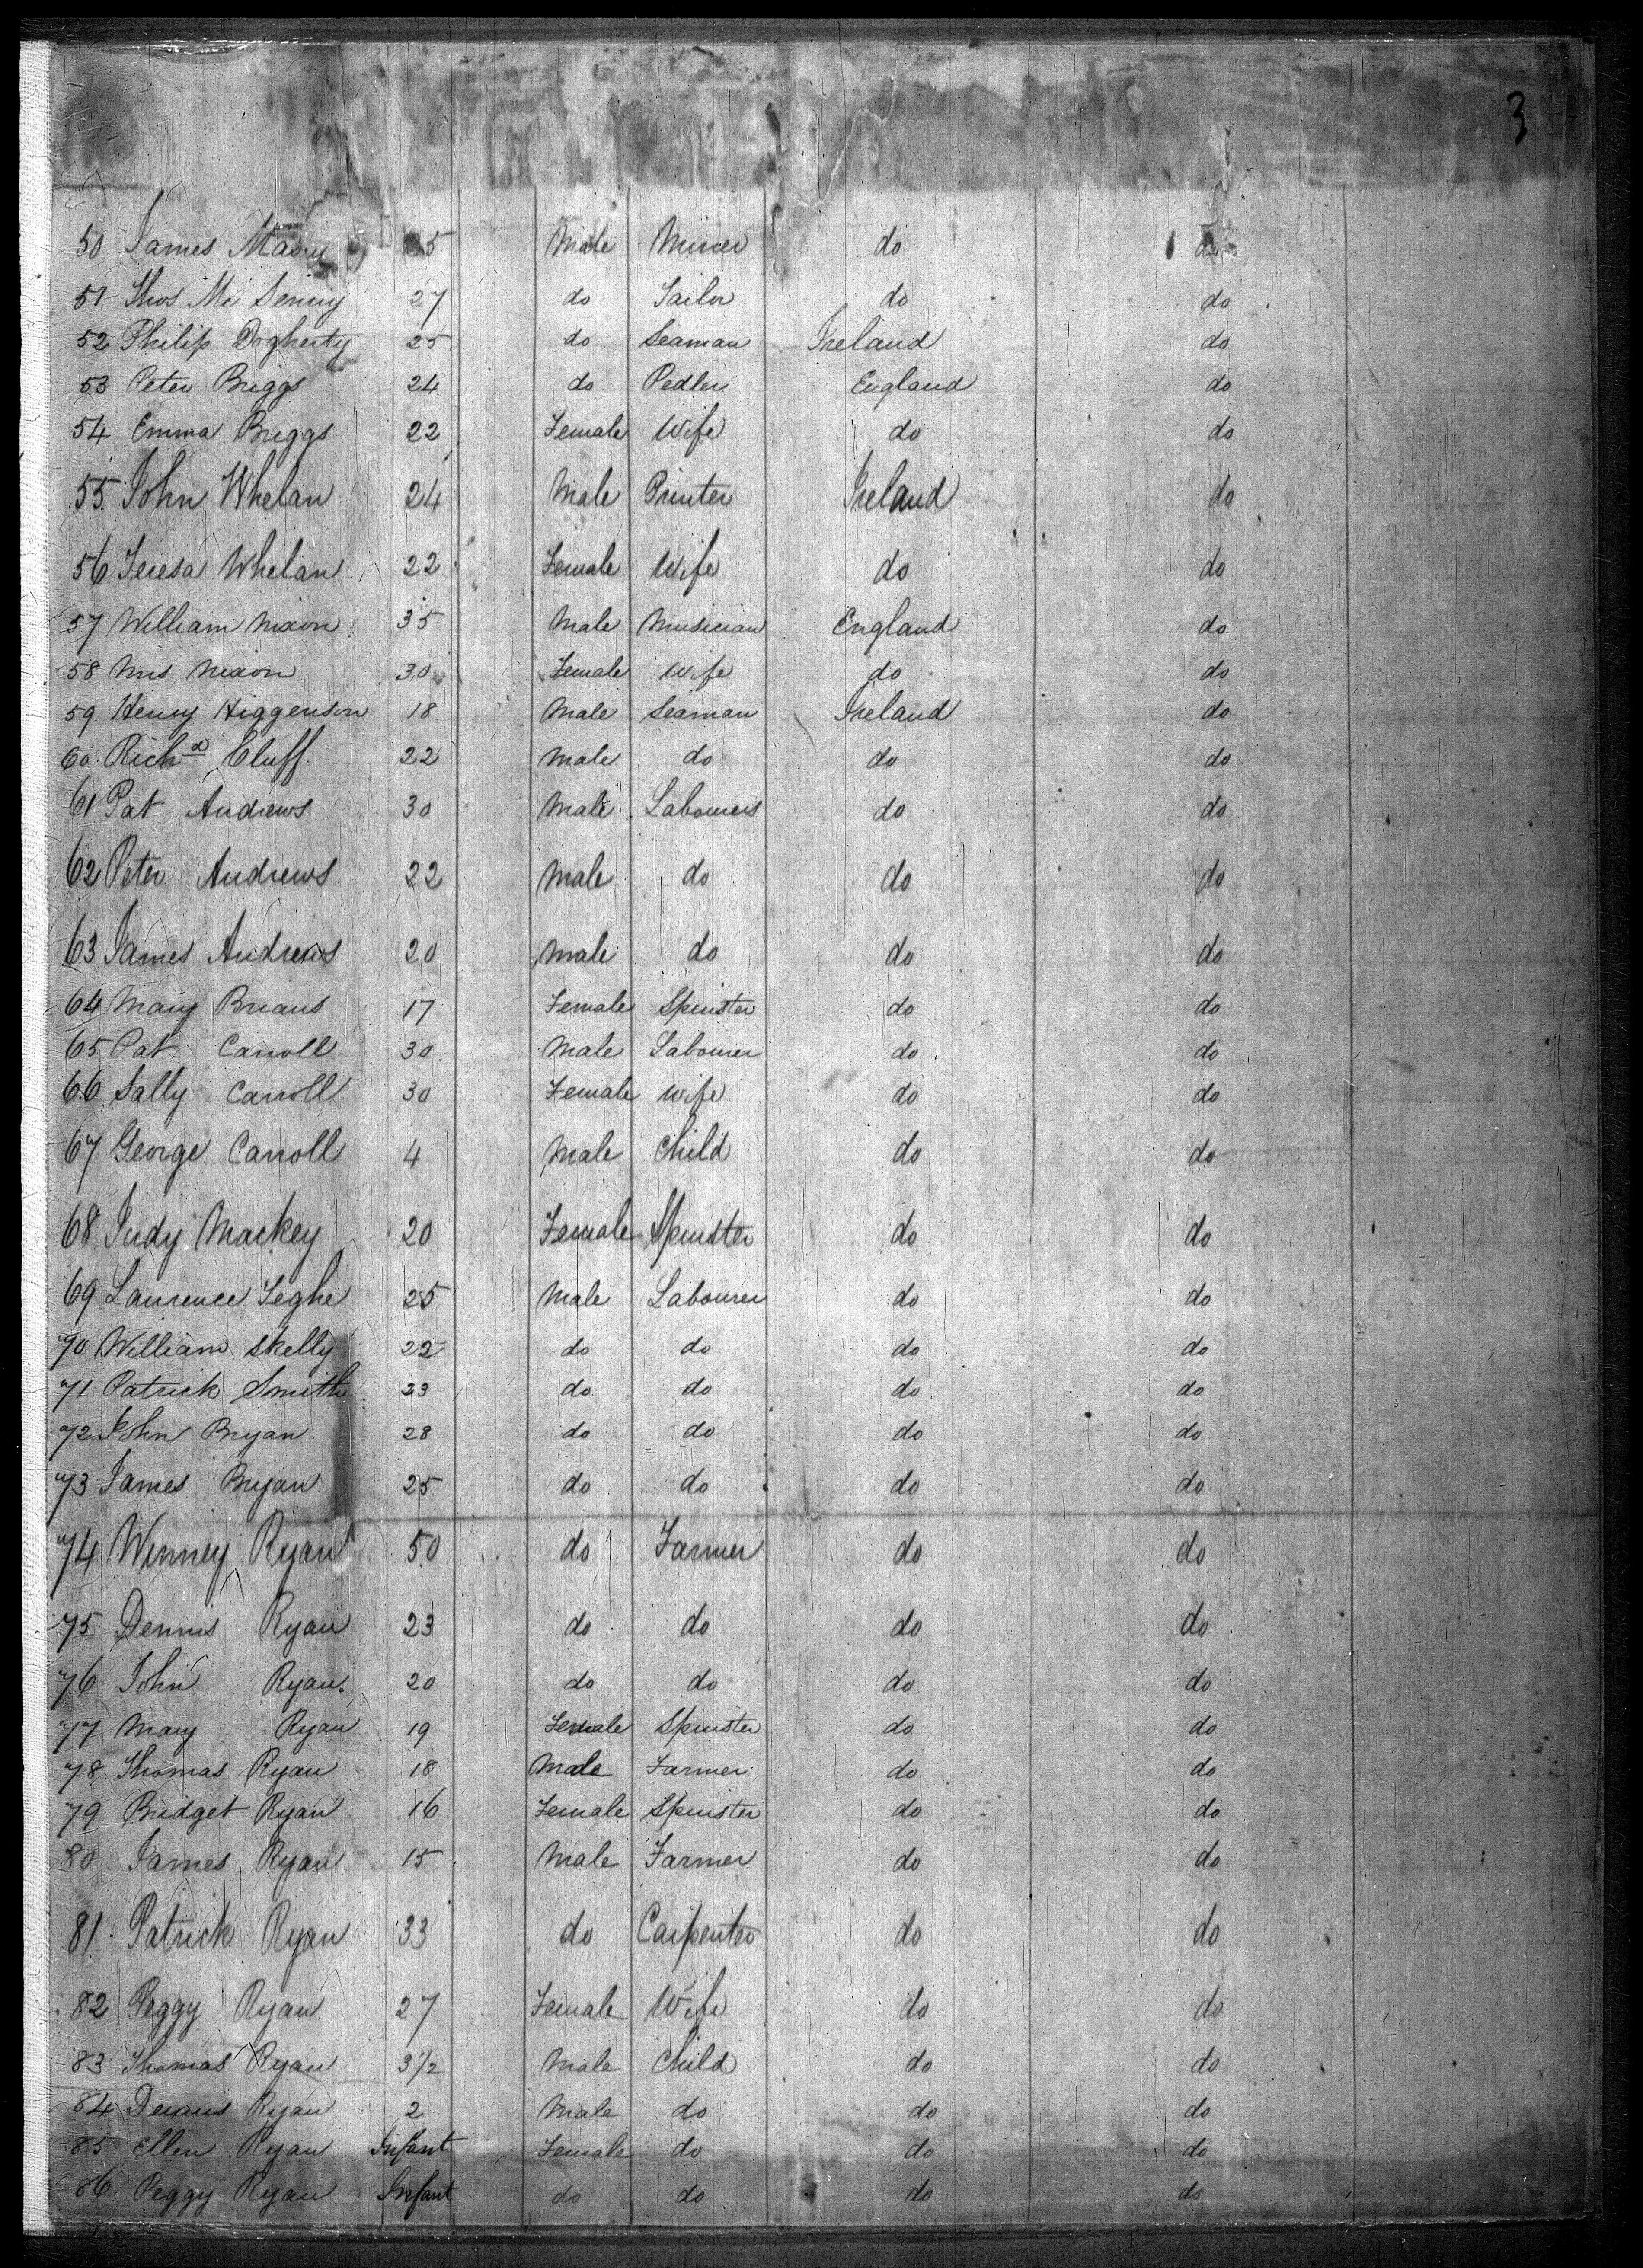 3
50 James Male Miner do do
51 Thos Mc 27 do Tailor do do
52 Philip Dogherty 25 do Seaman Ireland do
53 Peter Briggs 24 do Pedler England do
54 Emma Briggs 22 Female Wife do do
55 John Whelan 24 Male Printer Ireland do
56 Teresa Whelan 22 Female Wife do do
57 William Nixon 35 Male Musician England do
58 Mrs Nixon 30 Female Wife do do
59 Henry Higgenson 18 Male Seaman Ireland do
60 Richd Cluff 22 Male do do do
61 Pat Andrews 30 Male Labourers do do
62 Peter Andrews 22 Male do do do
63 James Andrews 20 Male do do do
64 Mary Brians 17 Female Spinster do do
65 Pat Carroll 30 Male Labourer do do
66 Sally Carroll 30 Female Wife do do
67 George Carroll 4 Male Child do do
68 Judy Mackey 20 Female Spinster do do
69 Laurence Teghe 25 Male Labourer do do
70 William Skelly 22 do do do do
71 Patrick Smith 23 do do do do
72 John Bryan 28 do do do do
73 James Bryan 25 do do do do
74 Winney Ryan 50 do Farmer do do
75 Dennis Ryan 23 do do do do
76 John Ryan 20 do do do do
77 Mary Ryan 19 Female Spinster do do
78 Thomas Ryan 18 Male Farmer do do
79 Bridget Ryan 16 Female Spinster do do
80 James Ryan 15 Male Farmer do do
81 Patrick Ryan 33 do Carpenter do do
82 Peggy Ryan 27 Female Wife do do
83 Thomas Ryan 3 1/2 Male Child do do
84 Dennis Ryan 2 Male do do do
85 Ellen Ryan Infant Female do do do
86 Peggy Ryan Infant do do do do